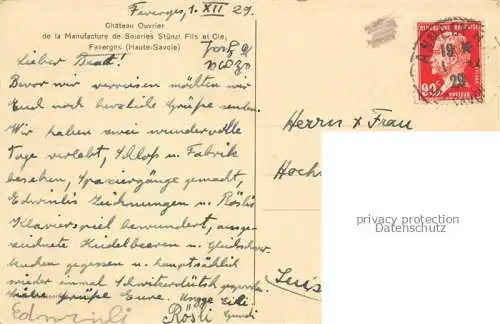 Faverges, 1. XII 29.
Château Ouvrier
de la Manufacture de Soieries Stünzi Fils et Cie,
Faverges (Haute-Savoie)
Lieber!
Bevor wir verreisen möchten wir
Euch noch herzliche Grüsse senden.
Wir haben zwei wundervolle
Tage verlebt, Schloss u. Fabrik
besehen, Spaziergänge gemacht,
Edwinlis Zeichnungen u. Röslis
Klavierspiel bewundert, ausge-
zeichnete Heidelbeeren u.
kuchen gegessen u. hauptsächlich
wieder einmal Schwizerdütsch
Grüsse Eure.
Edwinli Rösli
Herrn & Frau
Hoch
Suis
19
29
90c
POSTES
privacy protection
Datenschutz